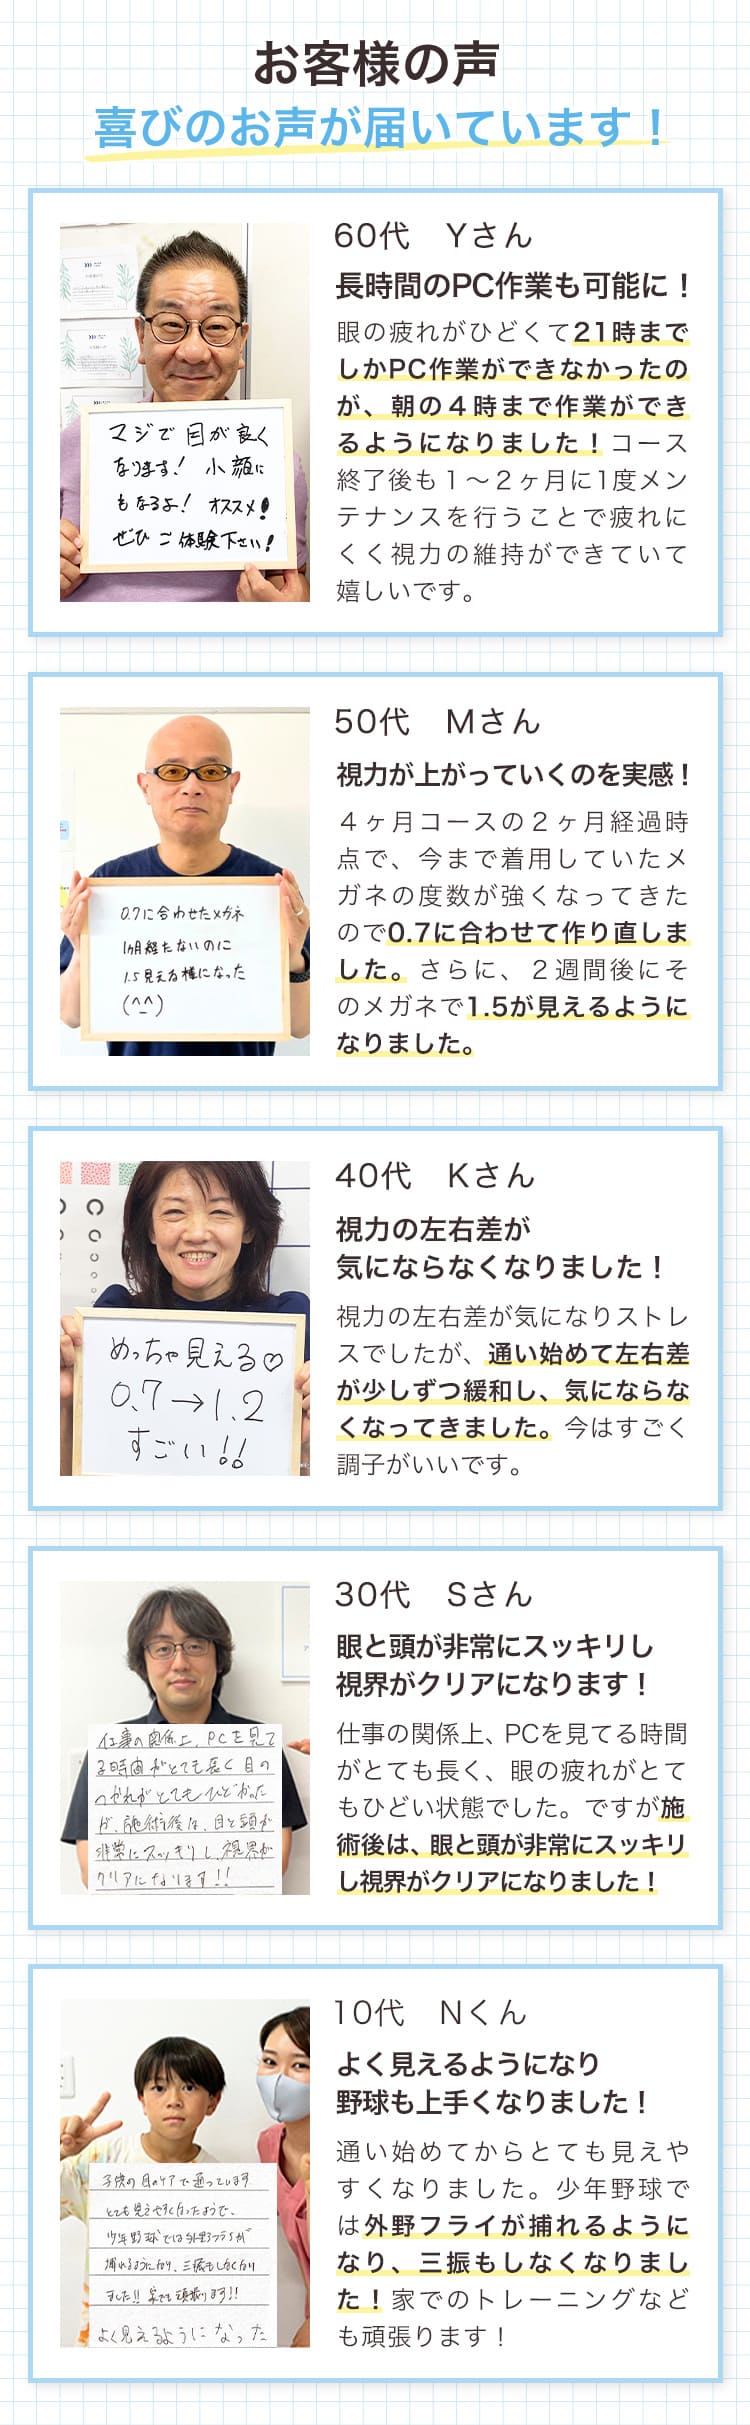 お客様の声
喜びのお声が届いています！
60代　Yさん
長時間のPC作業も可能に！
眼の疲れがひどくて21時まで
しかPC作業ができなかったの
が、朝の４時まで作業ができ
るようになりました！コース
終了後も１～２ヶ月に1度メン
テナンスを行うことで疲れに
くく視力の維持ができていて
嬉しいです。
マジで目が良く
なります！小顔に
もなるよ！オススメ！
ぜひご体験下さい！
50代　Mさん
視力が上がっていくのを実感！
４ヶ月コースの２ヶ月経過時
点で、今まで着用していたメ
ガネの度数が強くなってきた
ので0.7に合わせて作り直しま
した。さらに、２週間後にそ
のメガネで1.5が見えるように
なりました。
0.7に合わせたメガネ
1ヶ月経たないのに
1.5見える様になった
(^_^)
40代　Kさん
視力の左右差が
気にならなくなりました！
視力の左右差が気になりストレ
スでしたが、通い始めて左右差
が少しずつ緩和し、気にならな
くなってきました。今はすごく
調子がいいです。
めっちゃ見える♡
0.7→1.2
すごい!!
30代　Sさん
眼と頭が非常にスッキリし
視界がクリアになります！
仕事の関係上、PCを見てる時間
がとても長く、眼の疲れがとて
もひどい状態でした。ですが施
術後は、眼と頭が非常にスッキリ
し視界がクリアになりました！
仕事の関係上、PCを見て
る時間がとても長く目の
つかれがとてもひどかった
が、施術後は、目と頭が
非常にスッキリし、視界が
クリアになります!!
10代　Nくん
よく見えるようになり
野球も上手くなりました！
通い始めてからとても見えや
すくなりました。少年野球で
は外野フライが捕れるように
なり、三振もしなくなりまし
た！家でのトレーニングなど
も頑張ります！
子供の目のケアで通っています
とても見えやすくなったようで、
少年野球では外野フライが
捕れるようになり、三振もしなくなり
ました!!家でも頑張ります!!
よく見えるようになった